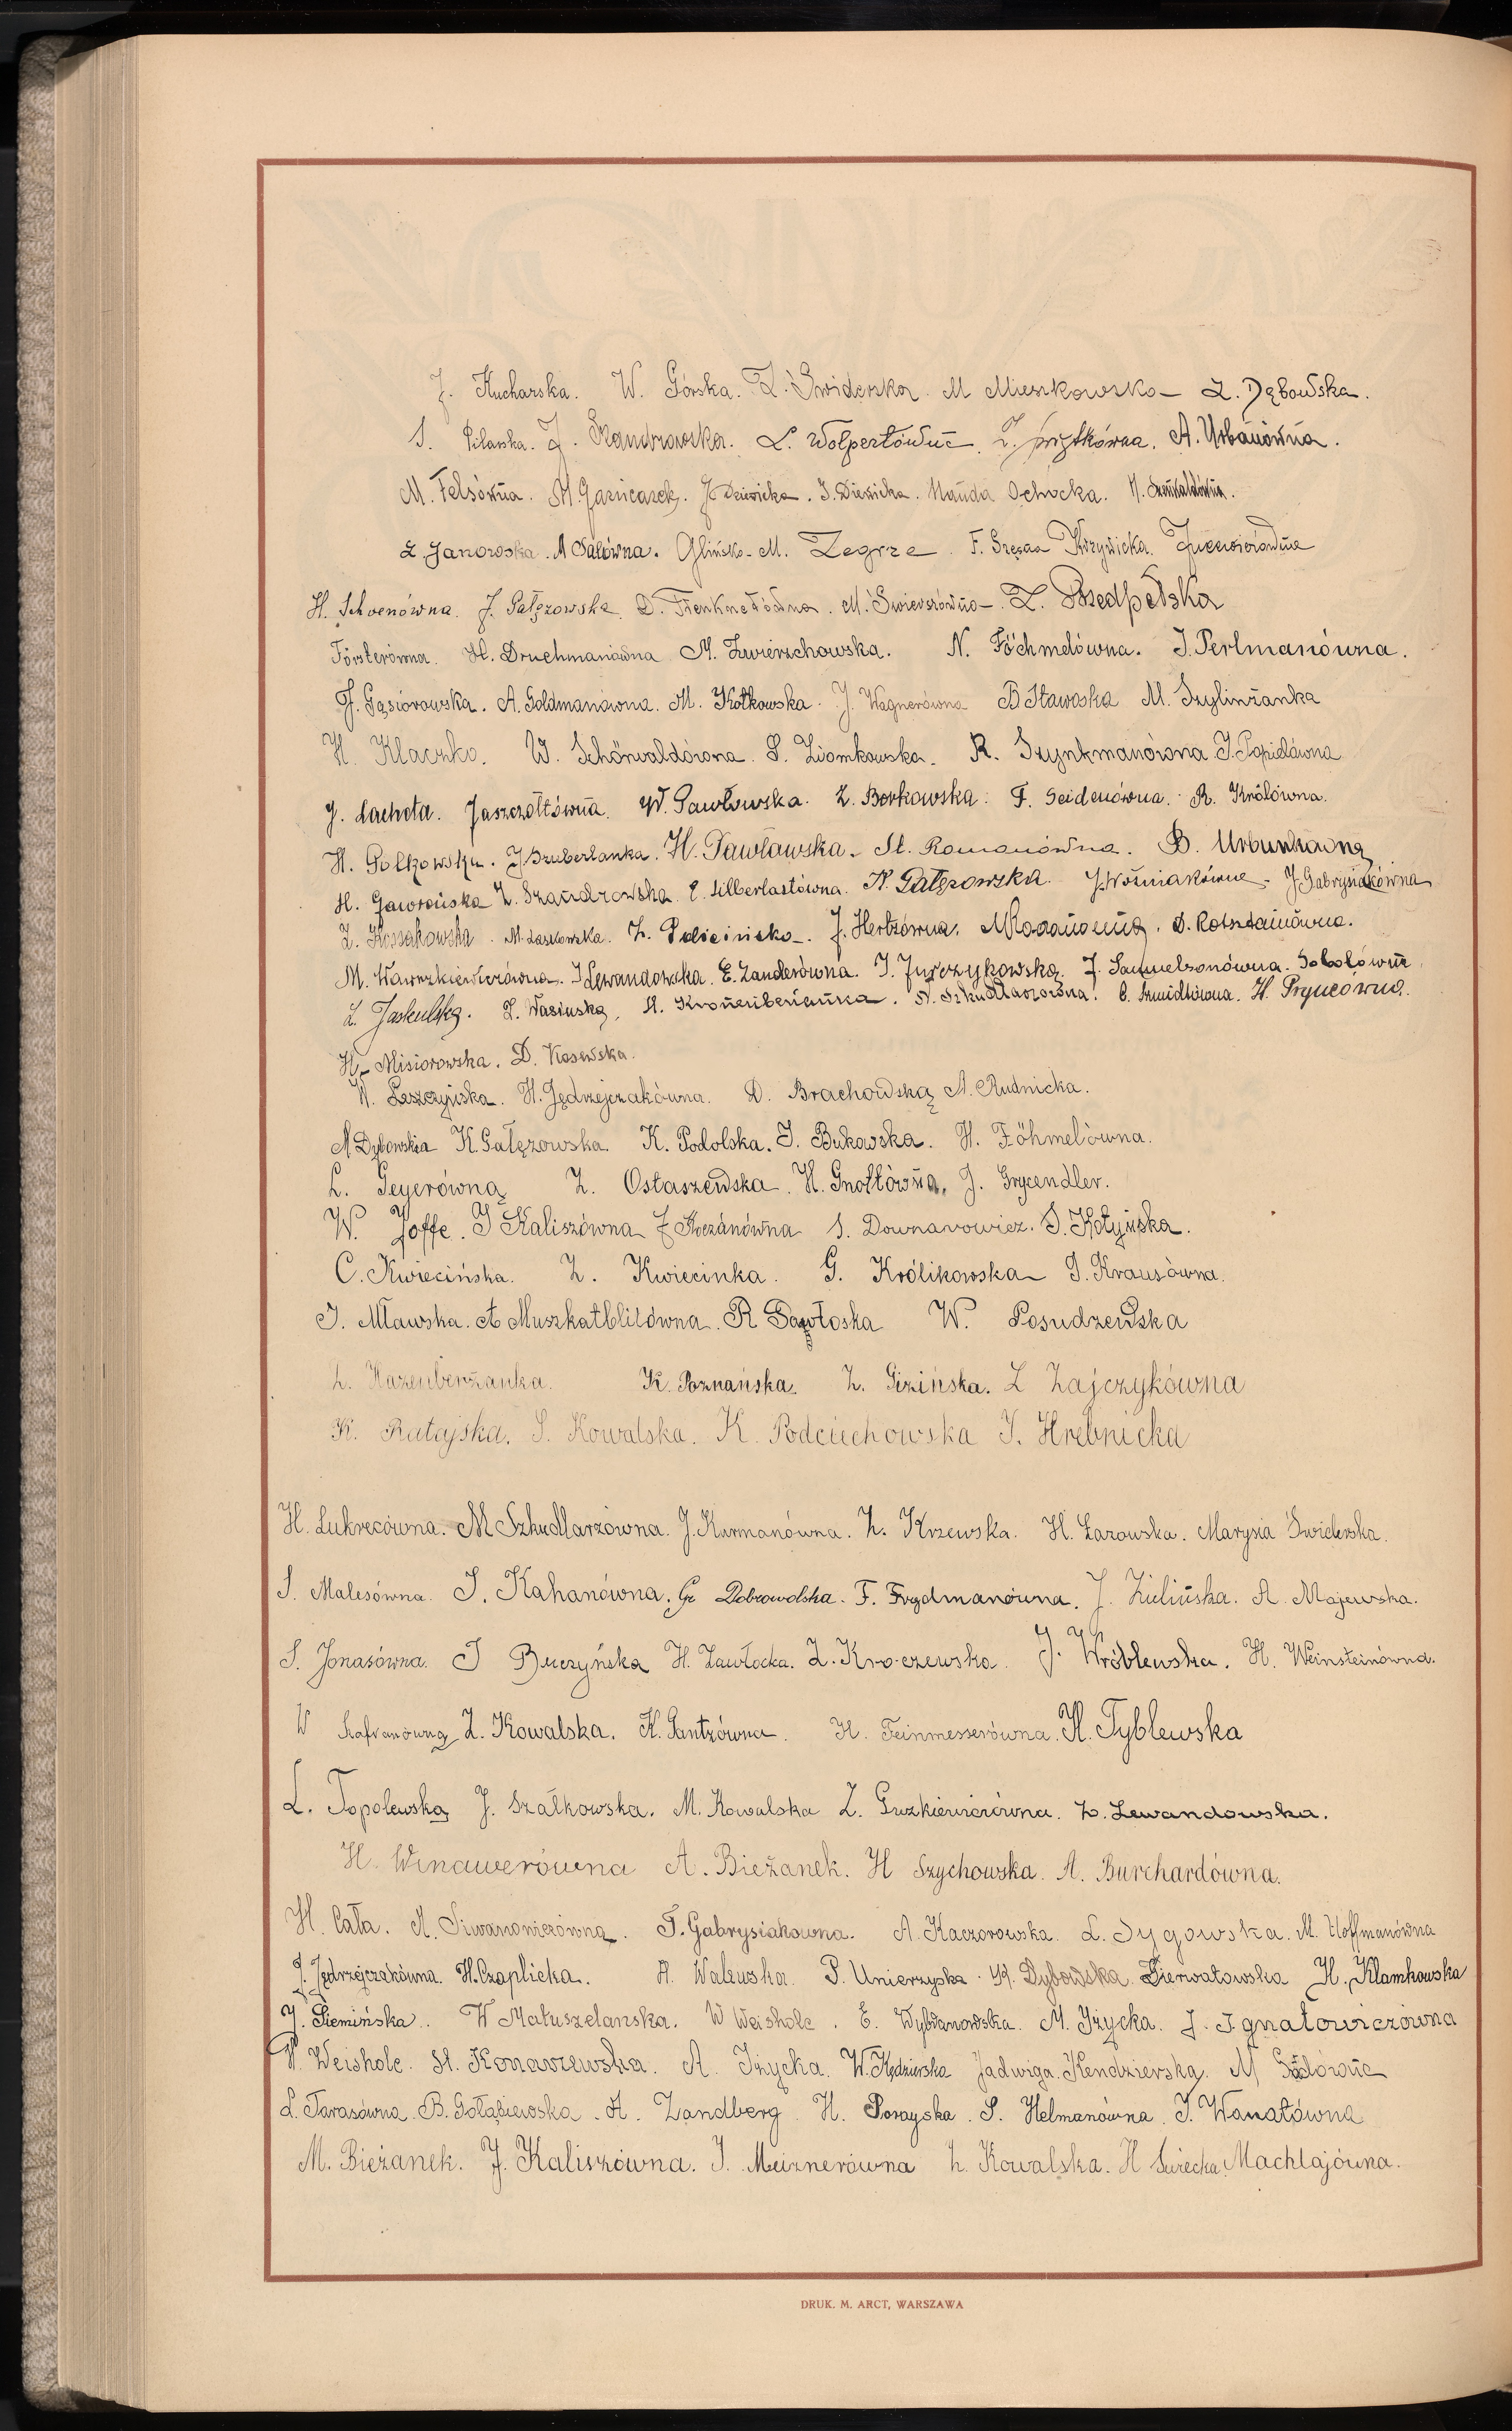 J. Kucharska. W. Górska. Z. Świderska M Mieszkowska Z. Dąbowska.
S. Pilarska. J. Szandrowska. L. Wolpertówna. Z. Piątkówna. A. Urbanówna.
M. Felsówna. M. Garncarek. J. Dziewicka. J. Dziewicka. Wanda Ochocka.
Z. Janowska. M Salówna. Glińska M. Zegrze. F. Szęsna Krzywicka.
H. Schoenówna. J. Gałęzowska. D. Frenklówna. M. Z.
Försterówna. H. Druchmanówna M. Zwierzchowska. N. Föchmelówna. J. Perlmanówna.
J. Gąsiorowska. A. Goldmanówna. M. Kotkowska. J. Wagnerówna B Stawoska M. Szylinżanka
H. Klaczko. W. Schönwaldówna. S. Ziomkowska. R. Szynkmanówna J. Popielówna
J. Lachota. Jaszczołtówna. W. Pawłowska. Z. Borkowska. F. Seidenówna. R. Królówna.
H. Golkowska. J Szuberlanka. H. Pawławska. St. Romanówna. B. Urbankówna
H. Gaworońska Z. Szandrowska. E. Silberlastówna. K. Gałęzowska. J. Woźniakówna. J. Gabrysiakówna
Z. Kossakowska. M. Laskowska. J. Hertzówna. D. Rotsztainówna.
M. Wawrzkiewiczówna. J Lewandowska. E. Zanderówna. J. Jurczykowska. J. Samuelsonówna. Sobolówna
Z. Jaskulska. Z. Wasiuska. H. Kronenberżanka. N. Szkudlarzówna. C. Szmidtówna. H. Pryncówna.
H. Misiorowska. D. Kosewska.
W. Leszczyńska. H. Jędrzejczakówna. D. Brachowska A. Rudnicka.
A Dybowska K. Gałęzowska. K. Podolska. J. Bukowska. H. Föhmelówna.
L. Geyerówna Z. Ostaszewska. H. Gnołtówna. J. Grycendler.
W. Joffe. J Kaliszówna Z Koczánówna S. Downarowicz. S. Kotyńska.
C. Kwiecińska. Z. Kwiecinka. G. Królikowska J. Krausówna.
J. Mławska. A Muszkatblitówna. R Pawłoska W. Posudzewska
Z. Hazenberżanka. K. Poznańska. Z. Gizińska. Z Zajczykówna
K. Ratajska. S. Kowalska. K. Podciechowska J. Hrebnicka
H. Lukrecówna. M Szkudlarzówna. J. Kurmanówna. Z. Krzewska. H. Łazowska. Marysia Świderska.
S. Malesówna. J. Kahanówna. G. Dobrowolska. F. Frydmanówna. J. Zielińska. A. Majewska.
S. Jonasówna. J Buczyńska H. Zawłocka. Z. Kroczewska. J. Wróblewska. H. Weinsteinówna.
W Szafranówna Z. Kowalska. K. Gantzówna. H. Feinmesserówna. H. Tyblewska
L. Topolewska J. Szałkowska. M. Kowalska Z. Guzkiewiczówna. Z. Lewandowska.
H. Winawerówna A. Bieżanek. H Szychowska. A. Burchardówna.
H. Cała. A. Siwanowiczówna. T. Gabrysiakowna. A. Kaczorowska. L. Dygowska. M. Hoffmanówna
J. Jędrzejczakówna. H. Czaplicka. A. Walewska. P. Unierzyska. W. Dybowska. Pierwałowska H. Klamkowska
J. Siemińska. W Matuszelanska. W Weisholc. E. Wyłwanowska. M. Iżycka. J. Ignatowiczówna
W. Weisholc. H. Konarzewska. A. Iżycka. W. Kędzierska Jadwiga. Kendzierska.
L. Tarasówna. B. Gołąbiewska. A. Zandberg. H. Porayska. S. Helmanówna. J. Wanatówna
M. Bieżanek. J. Kaliszówna. J. Meiznerówna Z. Kowalska. H Surecka. Machlajówna.
DRUK. M. ARCT, WARSZAWA